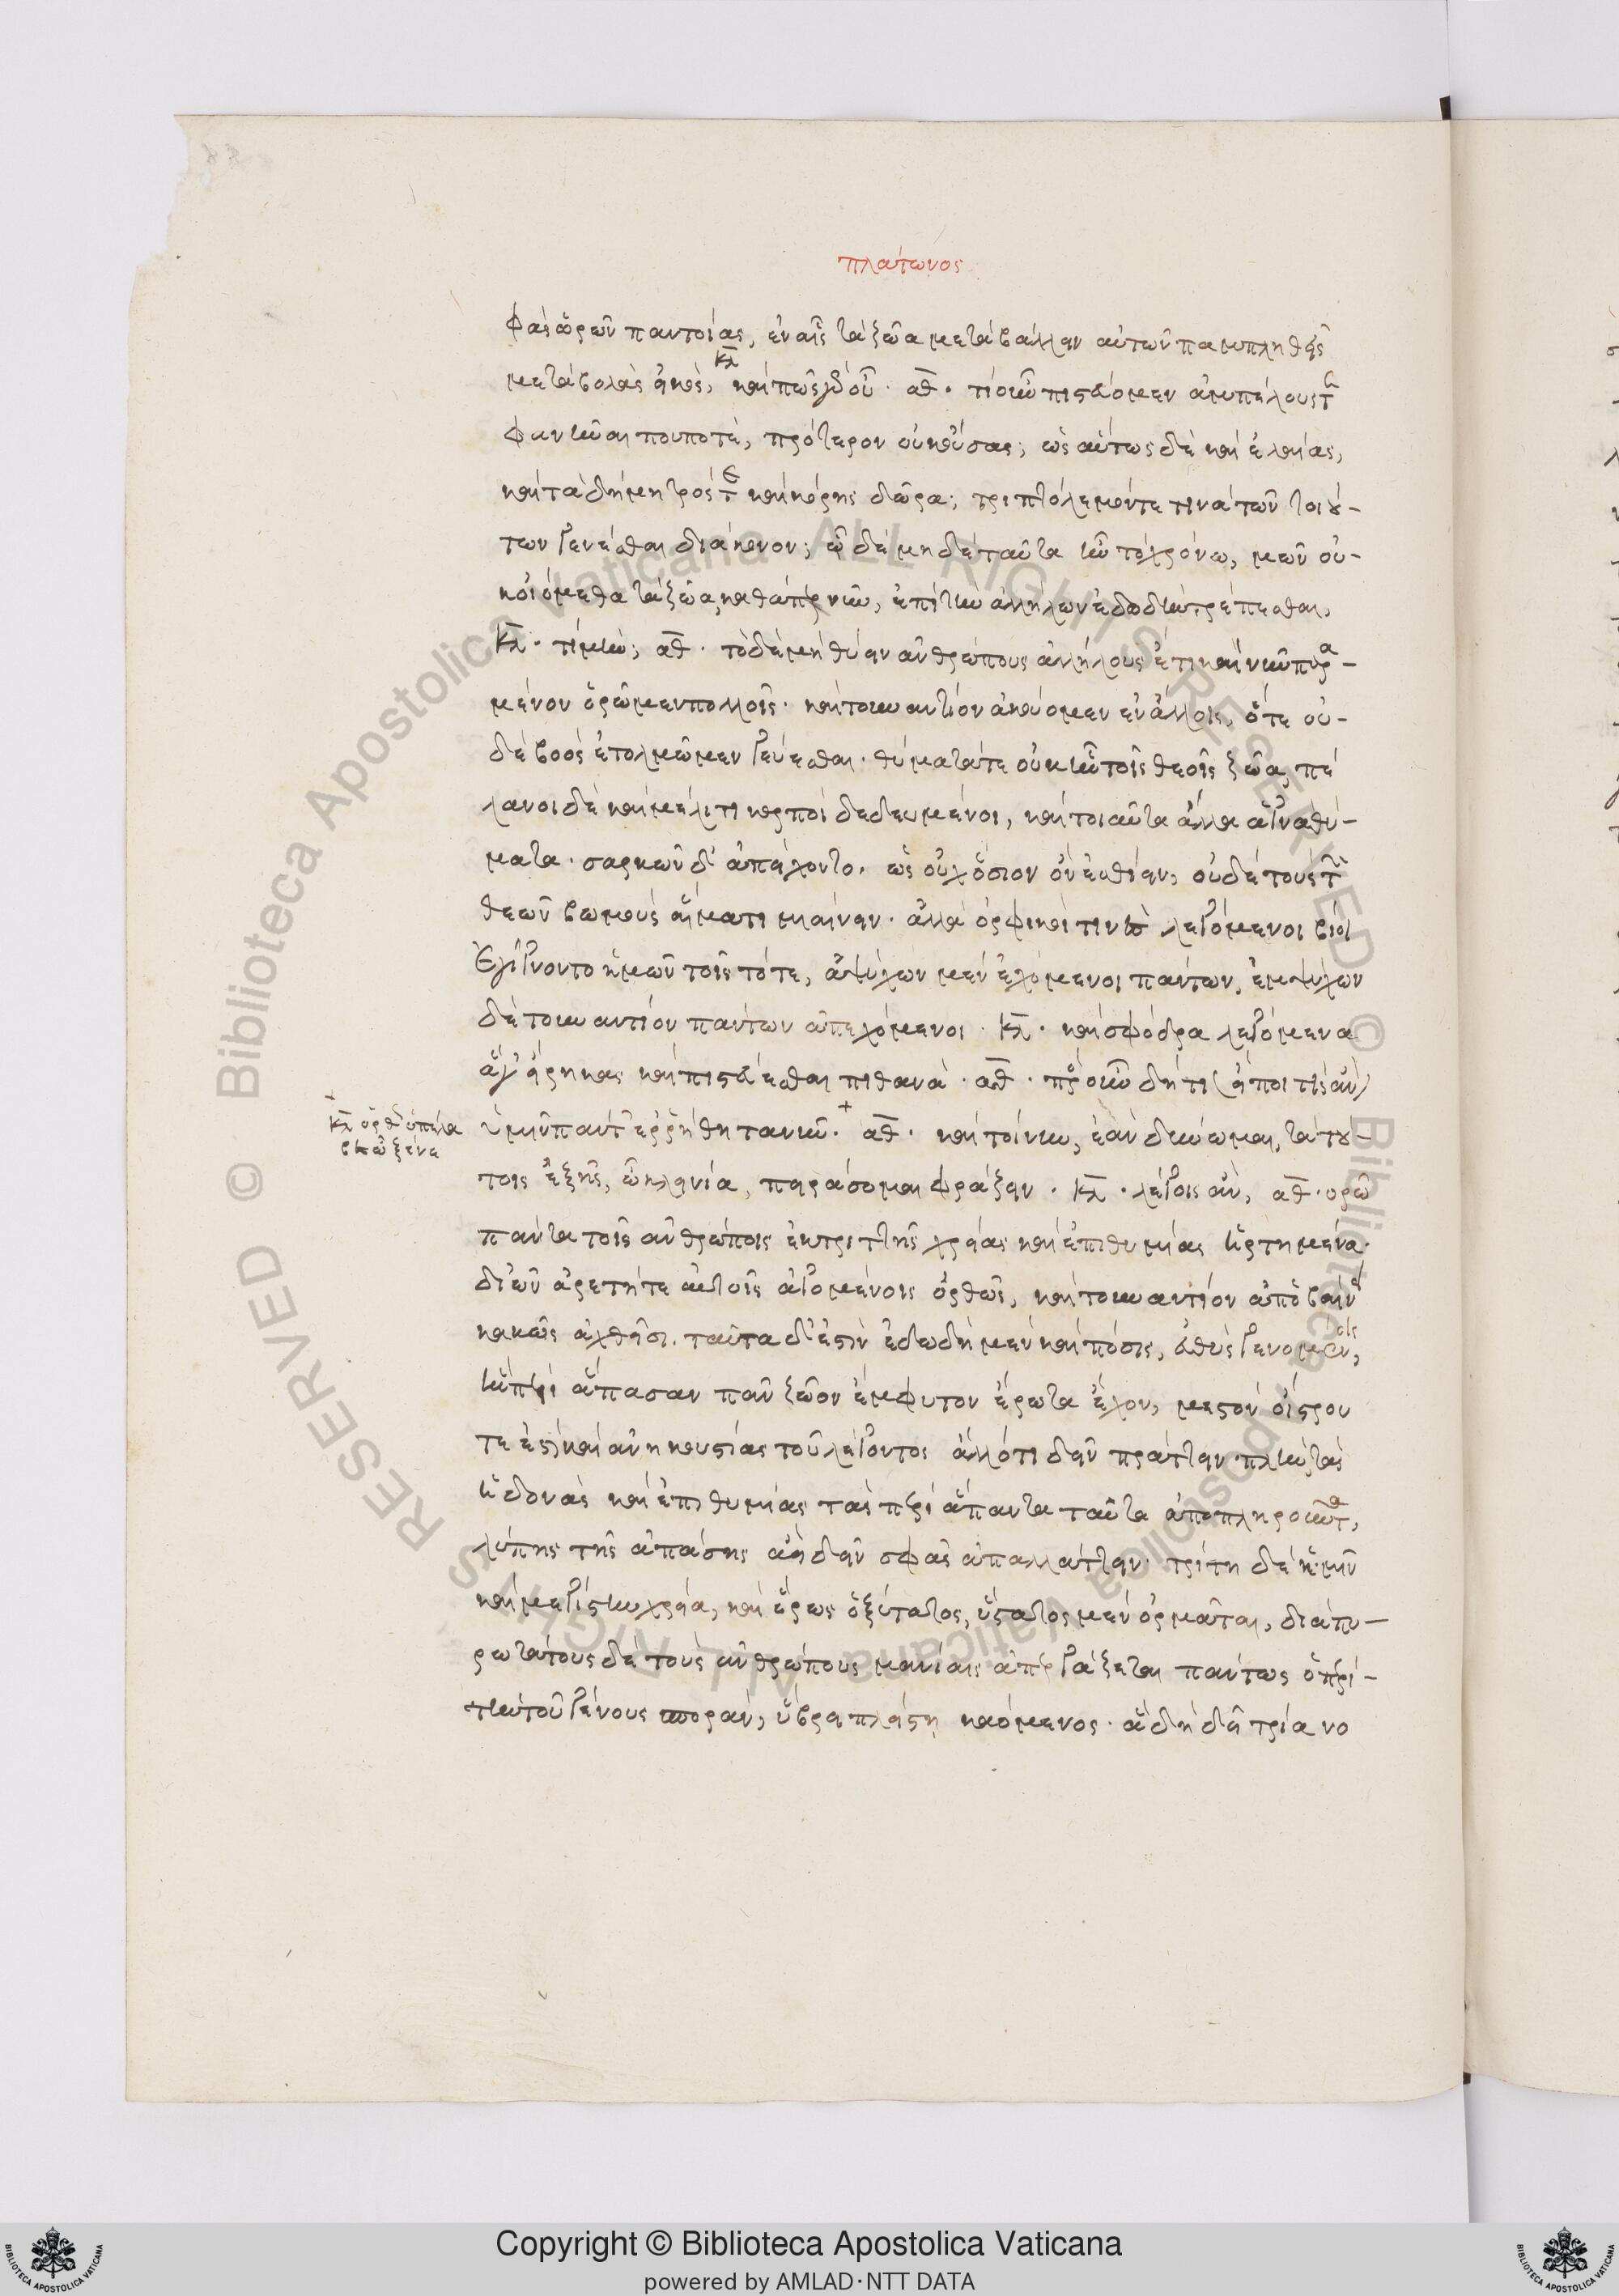 πλάτωνος
φὰς ὡρῶν παντοίας, ἐν αἷς τὰ ζῶα μεταβάλλειν αὑτῶν παμπληθεῖς
μεταβολὰς εἰκός, κλ καὶ πῶς γὰρ οὔ· αθ· τί οὖν πιστεύομεν ἀμπέλους τ
φανῆναι που ποτὲ, πρότερον οὐκ οὔσας; ὡσαύτως δὲ καὶ ἐλαίας,
καὶ τὰ δήμητρός τε καὶ κόρης δῶρα; τριπτόλεμόν τέ τινα τῶν τοιού-
των γενέσθαι διάκονον; ὧ δὲ μηδὲ ταῦτα ἦν τὸ χρόνω, μῶν οὐ-
κ οἰόμεθα τὰ ζῶα, καθάπερ νῦν, ἐπὶ τὴν ἀλλήλων ἐδωδὴν τρέπεσθαι,
κλ· τί μήν; αθ· τὸ δὲ μὴ θύειν ἀνθρώπους ἀλλήλους ἔτι καὶ νῦν παρα-
μένον ὁρῶμεν πολλοῖς· καὶ τοὐναντίον ἀκούομεν ἐν ἄλλοις, ὅτε οὐ-
δὲ βοὸς ἐτολμῶμεν γεύεσθαι· θύματά τε οὐκ ἦν τοῖς θεοῖς ζῶα, πέ
λανοι δὲ καὶ μέλιτι καρποὶ δεδευμένοι, καὶ τοιαῦτα ἄλλα ἁγνὰ θύ-
ματα· σαρκῶν δ' ἀπείχοντο· ὡς οὐχ ὅσιον ὂν ἐσθίειν, οὐδὲ τοὺς τῶν
θεῶν βωμοὺς αἵματι μιαίνειν· ἀλλὰ ὀρφικοί τινες λεγόμενοι βίοι
ἐγίγνοντο ἡμῶν τοῖς τότε, ἀψύχων μὲν ἐχόμενοι πάντων, ἐμψύχων
δὲ τοὐναντίον πάντων ἀπεχόμενοι· κλ· καὶ σφόδρα λεγόμενα
ἅ γ' εἴρηκας καὶ πιστεύεσθαι πιθανά· αθ· πρὸς οὖν δή τι (εἴποι τις ἂν)
ὑμῖν πάντ' ἐρρήθη τανῦν· + αθ· καὶ τοίνυν, ἐὰν δύνωμαι, τὰ τού-
+ κλ ὀρθῶς ὑπέλα
βες ὦ ξένε
τοις ἑξῆς, ὦ κλεινία, πειράσομαι φράζειν· κλ· λέγοις ἄν, αθ· ὁρῶ
πάντα τοῖς ἀνθρώποις ἐκ τριττῆς χρείας καὶ ἐπιθυμίας ἠρτημένα·
δι' ὧν ἀρετή τε αὐτοῖς ἀγομένοις ὀρθῶς, καὶ τοὐναντίον ἀποβαίνει
κακῶς ἀχθεῖσι. ταῦτα δ' ἐστὶν ἐδωδὴ μὲν καὶ πόσις, εὐθὺς γενομένοις,
ἣν πέρι ἅπασαν πᾶν ζῶον ἔμφυτον ἔρωτα ἔχον, μεστὸν οἴστρου
τέ ἐστι καὶ ἀνηκουστίας τοῦ λέγοντος ἄλλό τι δεῖν πράττειν· πλὴν τὰς
ἡδονὰς καὶ ἐπιθυμίας τὰς περὶ ἅπαντα ταῦτα ἀποπληροῦντα,
λύπης τῆς ἁπάσης ἀεὶ δεῖν σφᾶς ἀπαλλάττειν· τρίτη δὲ ἡμῖν
καὶ μεγίστη χρεία, καὶ ἔρως ὀξύτατος, ὕστατος μὲν ὁρμᾶται, διαπυ-
ρωτάτους δὲ τοὺς ἀνθρώπους μανίαις ἀπεργάζεται πάντως ὁ περὶ-
τὴν τοῦ γένους σποράν, ὕβρει πλείστη καόμενος· ἃ δὴ δεῖ τρία νο